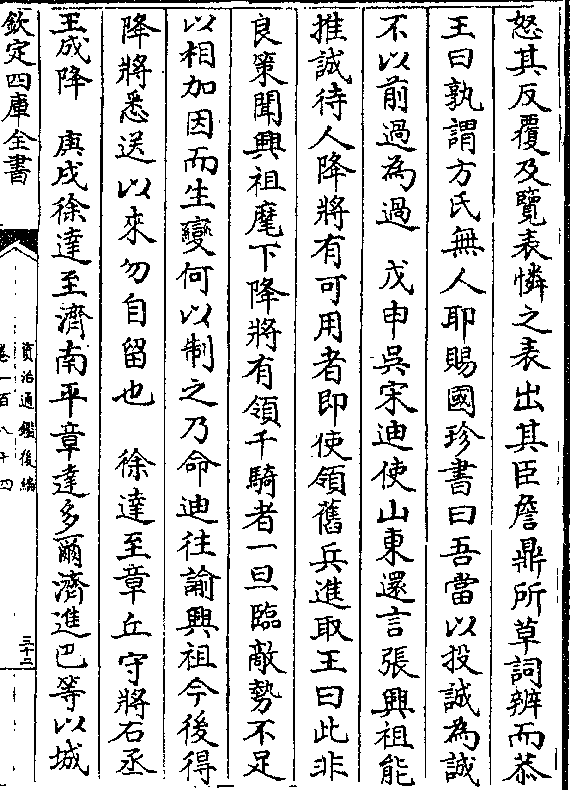 怒其反覆及覽表憐之表出其臣詹鼎所草詞辨而恭
王曰孰謂方氏無人耶賜國珍書曰吾當以投誠為誠
不以前過為過　戊申吳宋迪使山東還言張興祖能
推誠待人降將有可用者即使領舊兵進取王曰此非
良策聞興祖麾下降將有領千騎者一旦臨敵勢不足
以相加因而生變何以制之乃命迪往諭興祖今後得
降將悉送以來勿自留也　徐達至章丘守將右丞
王成降　庚戌徐達至濟南平章達多爾濟進巴等以城
欽定四庫全書
資治通鑑後編
卷一百八十四
三十二